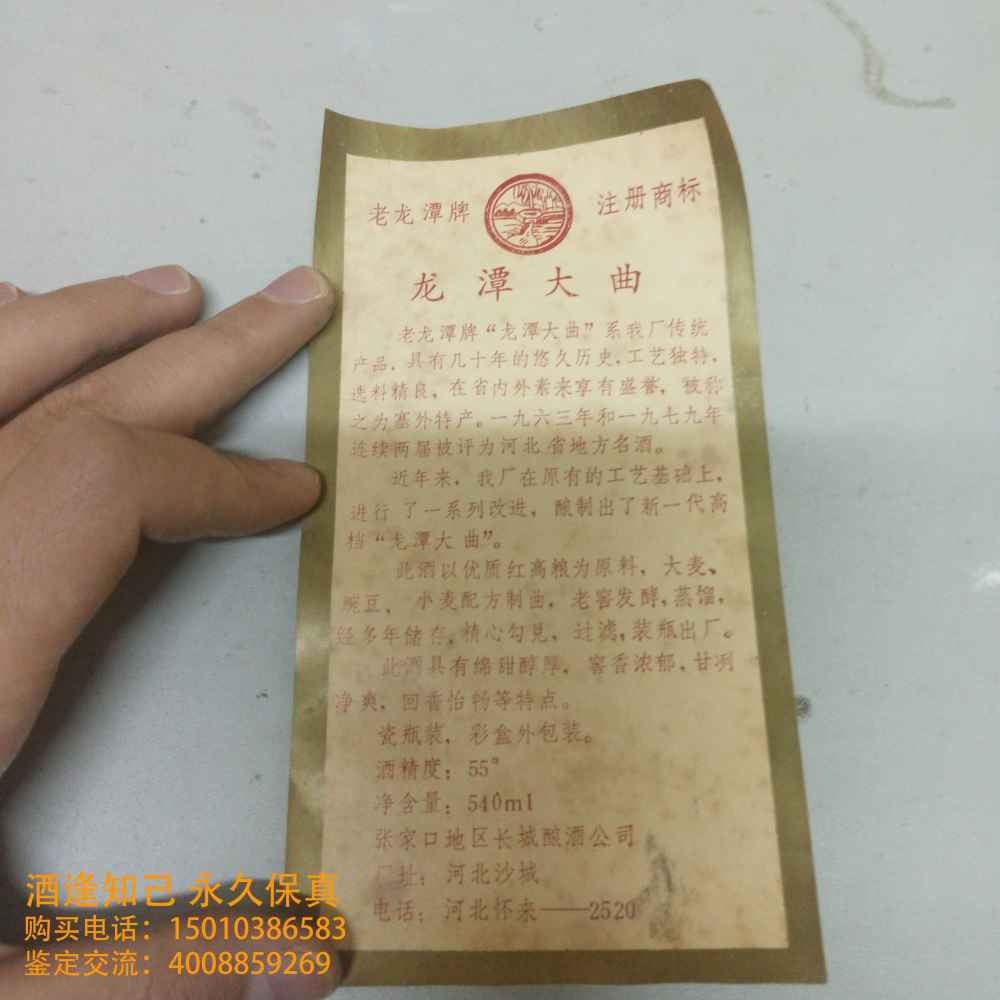 老龙潭牌 注册商标
龙潭大曲
老龙潭牌“龙潭大曲”系我厂传统
产品，具有几十年的悠久历史，工艺独特，
选料精良，在省内外素来享有盛誉，被称
之为塞外特产。一九六三年和一九七九年
连续两届被评为河北省地方名酒。
近年来，我厂在原有的工艺基础上，
进行了一系列改进，酿制出了新一代高
档“龙潭大曲”。
此酒以优质红高粮为原料，大麦、
豌豆、小麦配方制曲，老窖发酵，蒸馏，
经多年储存，精心勾兑，过滤，装瓶出厂。
此酒具有绵甜醇厚，窖香浓郁，甘洌
净爽，回香怡畅等特点。
瓷瓶装，彩盒外包装。
酒精度：55°
净含量：540ml
张家口地区长城酿酒公司
厂址：河北沙城
电话：河北怀来——2520
酒逢知己 永久保真
购买电话：15010386583
鉴定交流：4008859269